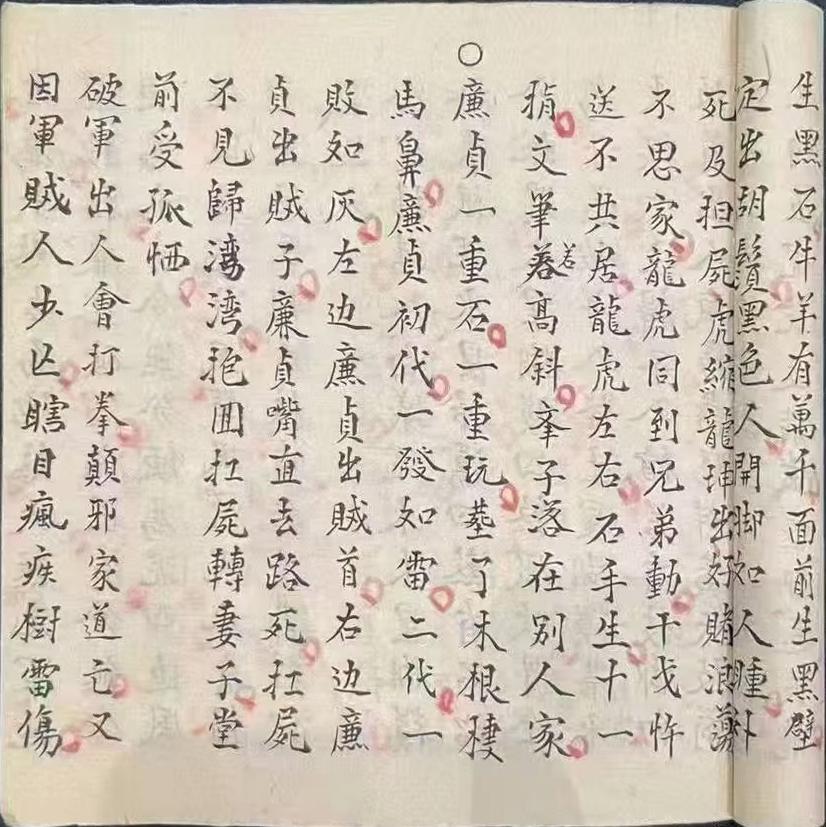 生黑石牛羊有萬千面前生黑壁
定出胡鬚黑色人開脚如人腫
死及担屍虎縮龍珅出好賭浪蕩
不思家龍虎同到兄弟動干戈忤
送不共居龍虎左右石手生十一
猾文筆峯若高斜峯子落在別人家
○廉貞一重石一重玩塟了木根棲
馬鼻廉貞初代一發如雷二代一
敗如灰左边廉貞出賊首右边廉
貞出賊子廉貞嘴直去路死扛屍
不見歸湾湾抱囬扛屍轉妻子堂
前受孤恓
破軍出人會打拳顛邪家道亡又
因軍賊人少亡瞎目瘋疾樹雷傷